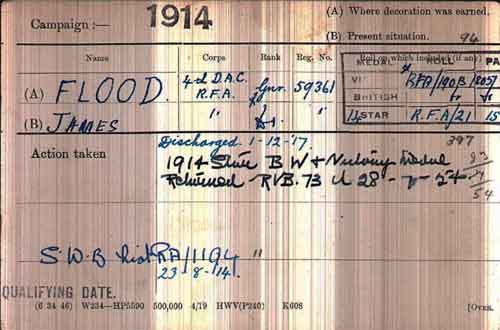 Campaign :— 1914
(A) Where decoration was earned.
(B) Present situation. 94
Name Corps Rank Reg. No. Roll on which included (if any)
MEDAL ROLL PA
(A) FLOOD. 4th D.A.C. R.F.A. Gnr. 59361
VI RFA/190B
(B) JAMES " " "
BRITISH " "
14 STAR R.F.A/21 15
Action taken Discharged 1-12-17. 397
1914 Star B W & Victory Medal
Returned RVB. 73 28 54
S.W.B List RA/1194 "
23-8-14.
QUALIFYING DATE.
(6 34 46) W234—HP5590 500,000 4/19 HWV(P240) K608 [OVER.